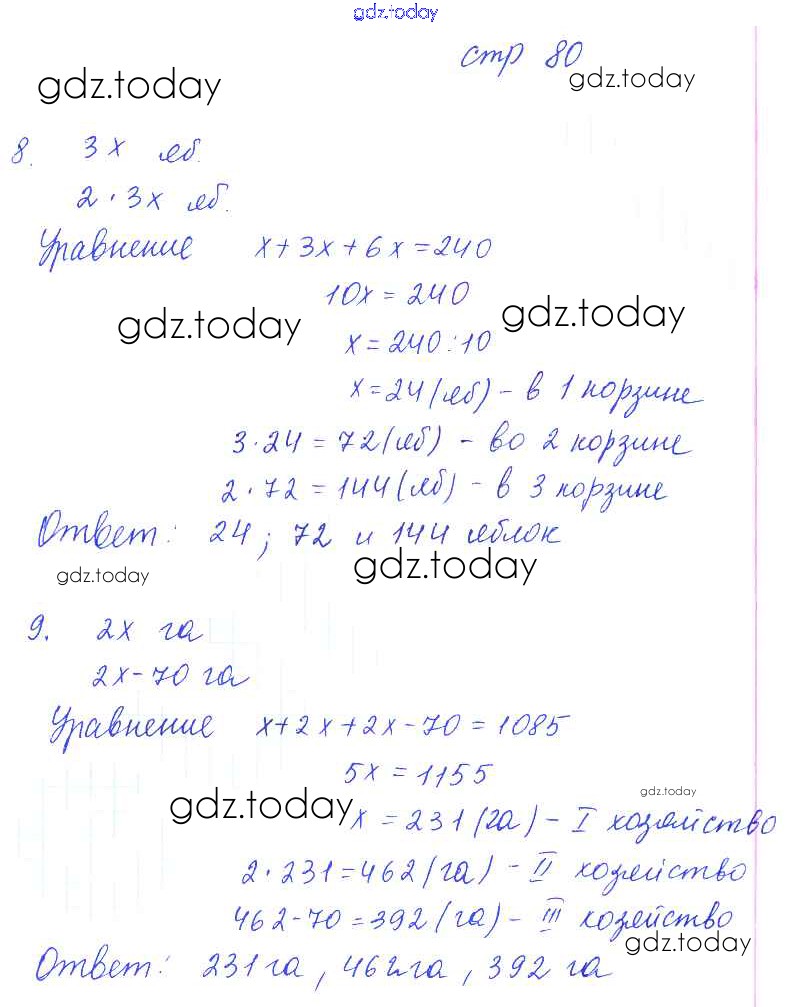 gdz.today
стр 80
gdz.today
gdz.today
8. 3х яб.
2 · 3х яб.
Уравнение х + 3х + 6х = 240
10х = 240
gdz.today
gdz.today
х = 240 : 10
х = 24 (яб) - в 1 корзине
3 · 24 = 72 (яб) - во 2 корзине
2 · 72 = 144 (яб) - в 3 корзине
Ответ: 24 ; 72 и 144 яблок
gdz.today
gdz.today
9. 2х га
2х - 70 га
Уравнение х + 2х + 2х - 70 = 1085
5х = 1155
gdz.today
gdz.today
х = 231 (га) - I хозяйство
2 · 231 = 462 (га) - II хозяйство
462 - 70 = 392 (га) - III хозяйство
gdz.today
Ответ: 231 га , 462 га , 392 га